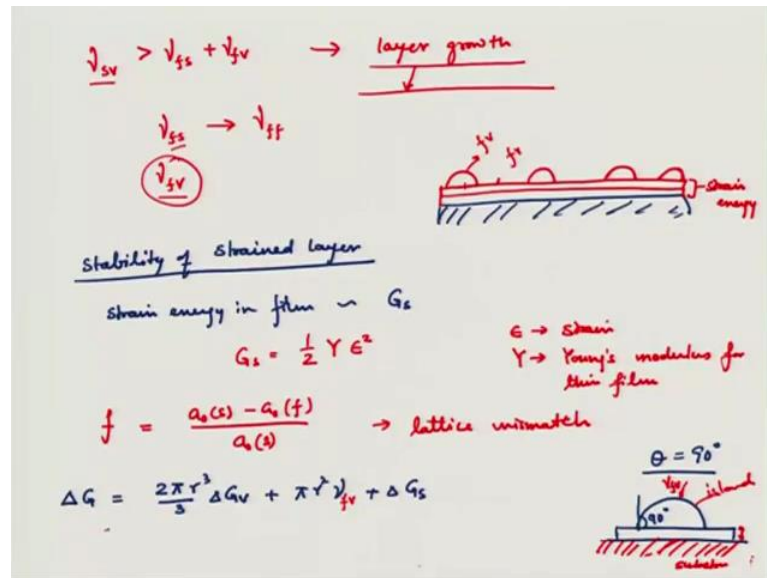 γsv > γfs + γfv → layer growth
γfs → γff
γfv
fv
fv
strain
energy
Stability of strained layer
strain energy in film ~ Gs
Gs = 1/2 Y ε²
ε → strain
Y → Young's modulus for
thin film
f = (a₀(s) - a₀(f)) / a₀(s) → lattice mismatch
θ = 90°
ΔG = 2πr³/3 ΔGv + πr² γfv + ΔGs
γfv
island
90°
substrate